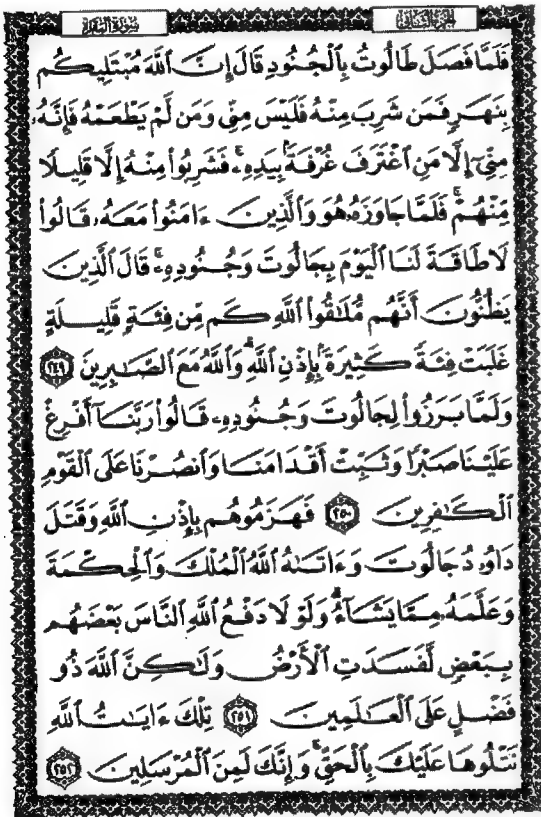 سورة البقرة الجزء الثاني
فَلَمَّا فَصَلَ طَالُوتُ بِٱلۡجُنُودِ قَالَ إِنَّ ٱللَّهَ مُبۡتَلِيكُم
بِنَهَرٖ فَمَن شَرِبَ مِنۡهُ فَلَيۡسَ مِنِّي وَمَن لَّمۡ يَطۡعَمۡهُ فَإِنَّهُۥ
مِنِّيٓ إِلَّا مَنِ ٱغۡتَرَفَ غُرۡفَةَۢ بِيَدِهِۦۚ فَشَرِبُواْ مِنۡهُ إِلَّا قَلِيلٗا
مِّنۡهُمۡۚ فَلَمَّا جَاوَزَهُۥ هُوَ وَٱلَّذِينَ ءَامَنُواْ مَعَهُۥ قَالُواْ
لَا طَاقَةَ لَنَا ٱلۡيَوۡمَ بِجَالُوتَ وَجُنُودِهِۦۚ قَالَ ٱلَّذِينَ
يَظُنُّونَ أَنَّهُم مُّلَٰقُواْ ٱللَّهِ كَم مِّن فِئَةٖ قَلِيلَةٍ
غَلَبَتۡ فِئَةٗ كَثِيرَةَۢ بِإِذۡنِ ٱللَّهِۗ وَٱللَّهُ مَعَ ٱلصَّٰبِرِينَ ٢٤٩
وَلَمَّا بَرَزُواْ لِجَالُوتَ وَجُنُودِهِۦ قَالُواْ رَبَّنَآ أَفۡرِغۡ
عَلَيۡنَا صَبۡرٗا وَثَبِّتۡ أَقۡدَامَنَا وَٱنصُرۡنَا عَلَى ٱلۡقَوۡمِ
ٱلۡكَٰفِرِينَ ٢٥٠ فَهَزَمُوهُم بِإِذۡنِ ٱللَّهِ وَقَتَلَ
دَاوُۥدُ جَالُوتَ وَءَاتَىٰهُ ٱللَّهُ ٱلۡمُلۡكَ وَٱلۡحِكۡمَةَ
وَعَلَّمَهُۥ مِمَّا يَشَآءُۗ وَلَوۡلَا دَفۡعُ ٱللَّهِ ٱلنَّاسَ بَعۡضَهُم
بِبَعۡضٖ لَّفَسَدَتِ ٱلۡأَرۡضُ وَلَٰكِنَّ ٱللَّهَ ذُو
فَضۡلٍ عَلَى ٱلۡعَٰلَمِينَ ٢٥١ تِلۡكَ ءَايَٰتُ ٱللَّهِ
نَتۡلُوهَا عَلَيۡكَ بِٱلۡحَقِّۚ وَإِنَّكَ لَمِنَ ٱلۡمُرۡسَلِينَ ٢٥٢